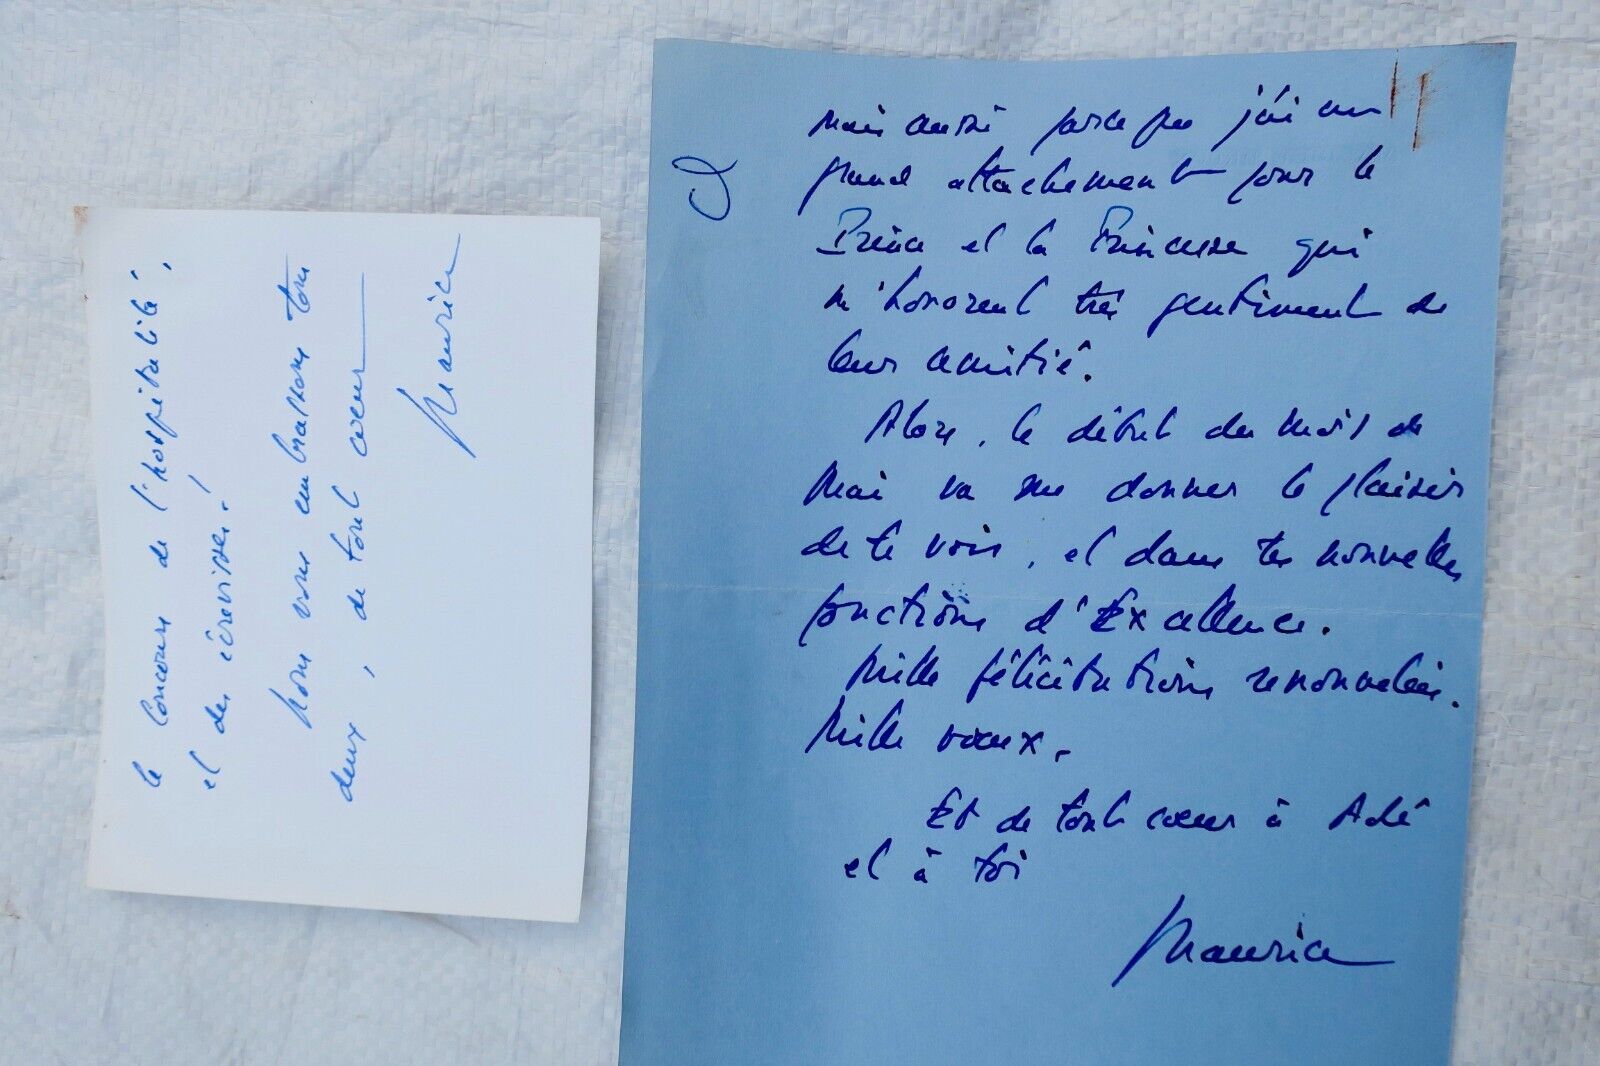 le Concours de l'hospitalité,
et des écrevisses!
Nous vous embrassons tous
deux, de tout cœur
Maurice
2
Mais aussi parce que j'ai un
grand attachement pour le
Prince et la Princesse qui
m'honorent très gentiment de
leur amitié.
Alors, le début du mois de
Mai va me donner le plaisir
de te voir, et dans tes nouvelles
fonctions d'Excellence.
Mille félicitations renouvelées.
Mille vœux.
Et de tout cœur à Adé
et à toi
Maurice